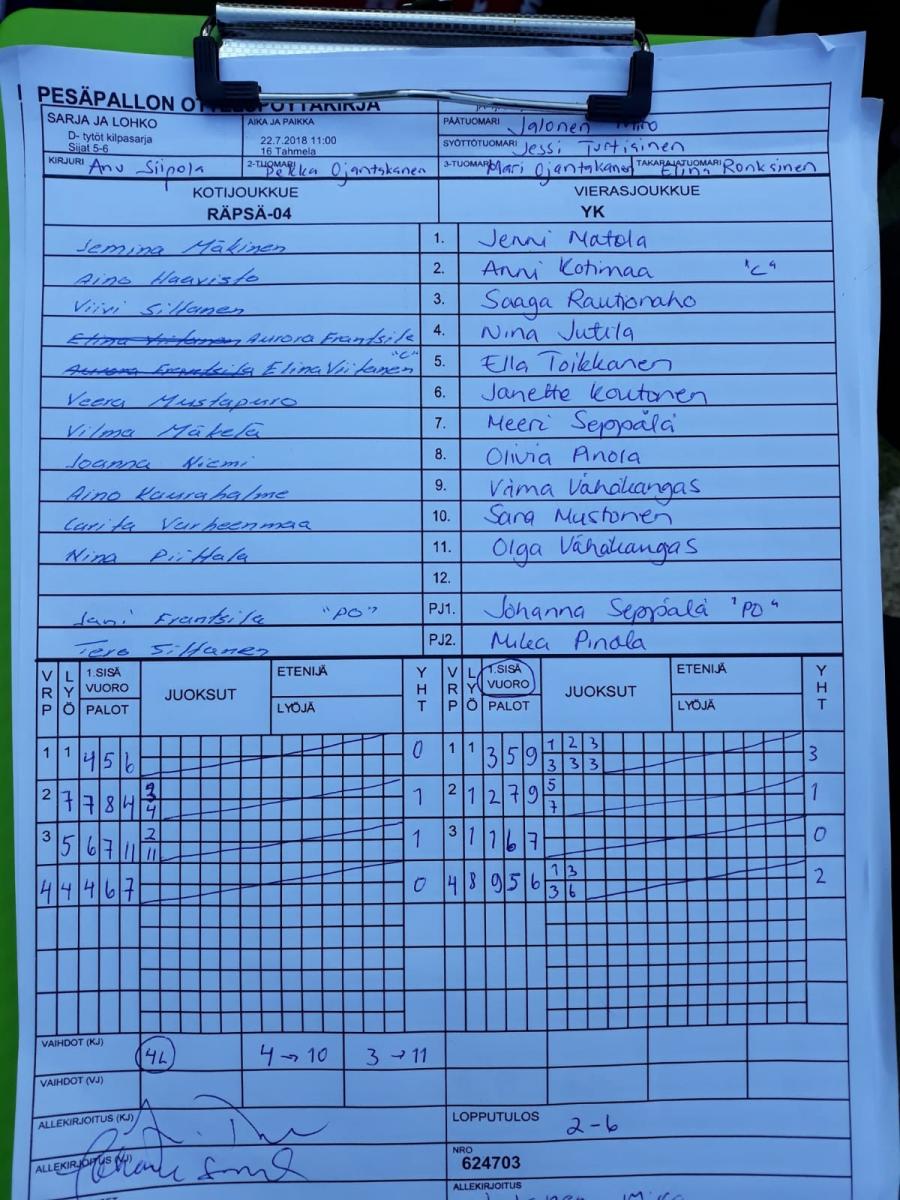 PESÄPALLON OTTELUPÖYTÄKIRJA
SARJA JA LOHKO AIKA JA PAIKKA PÄÄTUOMARI Jalonen Miro
D- tytöt kilpasarja 22.7.2018 11:00 SYÖTTÖTUOMARI Jessi
Sijat 5-6 16 Tahmela
KIRJURI Anu Siipola 2-TUOMARI Pekka Ojantakanen 3-TUOMARI Mari Ojantakanen TAKARAJATUOMARI Elina Ronksinen
KOTIJOUKKUE VIERASJOUKKUE
RÄPSÄ-04 YK
Jemina Mäkinen 1. Jenni Matola
Aino Haavisto 2. Anni Kotimaa "C"
Viivi Siltanen 3. Saaga Rautionaho
Elina Viitanen Aurora Frantsila 4. Nina Jutila
Aurora Frantsila Elina Viitanen "C" 5. Ella Toikkanen
Veera Mustapuro 6. Janette Koutonen
Vilma Mäkelä 7. Meeri Seppälä
Joanna Niemi 8. Olivia Pinola
Aino Kaurahalme 9. Vilma Vähäkangas
Carita Varheenmaa 10. Sara Mustonen
Nina Piittala 11. Olga Vähäkangas
12.
Jani Frantsila "PO" PJ1. Johanna Seppälä "PO"
Tero Siltanen PJ2. Milea Pinola
VRP LYÖ 1.SISÄ VUORO PALOT JUOKSUT ETENIJÄ LYÖJÄ YHT VRP LYÖ 1.SISÄ VUORO PALOT JUOKSUT ETENIJÄ LYÖJÄ YHT
1 1 4 5 6 0 1 1 3 5 9 1 2 3 3
3 3 3
2 7 7 8 4 4 1 2 1 2 7 9 5 1
7
3 5 6 7 11 2 1 3 1 1 6 7 0
11
4 4 4 6 7 0 4 8 9 5 6 1 3 2
3 6
VAIHDOT (KJ) 4L 4→10 3→11
VAIHDOT (VJ)
ALLEKIRJOITUS (KJ) LOPPUTULOS 2-6
ALLEKIRJOITUS (VJ) NRO
624703
ALLEKIRJOITUS